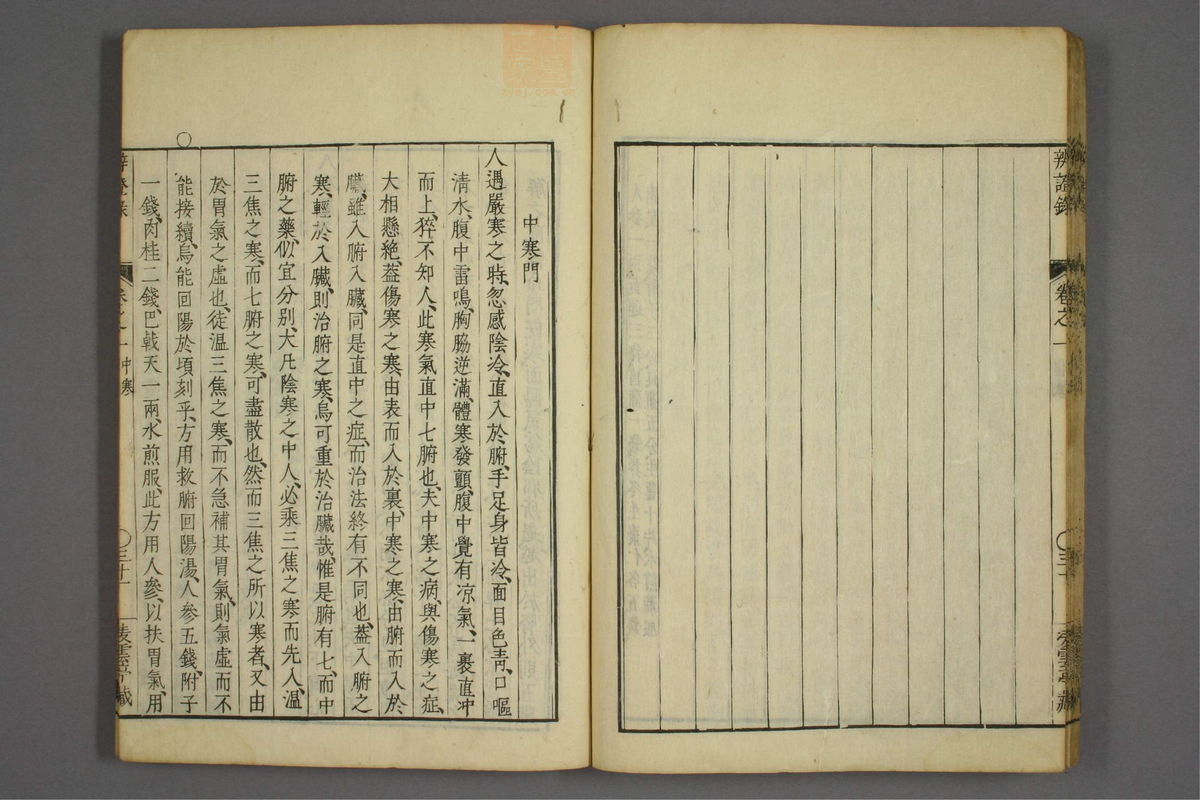 辨證錄 卷之一 三十
中寒門
人遇嚴寒之時、忽感陰冷、直入於腑、手足身皆冷、面目色青、口嘔
清水、腹中雷鳴、胸脇逆滿、體寒發顫、腹中覺有凉氣、一裹直冲
而上、猝不知人、此寒氣直中七腑也、夫中寒之病、與傷寒之症、
大相懸絶、葢傷寒之寒、由表而入於裏、中寒之寒、由腑而入於
臟、雖入腑入臟、同是直中之症、而治法終有不同也、葢入腑之
寒、輕於入臟、則治腑之寒、烏可重於治臟哉、惟是腑有七、而中
腑之藥、似宜分别、大凡陰寒之中人、必乘三焦之寒而先入、溫
三焦之寒、而七腑之寒、可盡散也、然而三焦之所以寒者、又由
於胃氣之虛也、徒溫三焦之寒、而不急補其胃氣、則氣虛而不
能接續、烏能回陽於頃刻乎、方用救腑回陽湯、人參五錢、附子
一錢、肉桂二錢、巴戟天一兩、水煎服、此方用人參、以扶胃氣、用
辨證錄 卷之一 中寒 三十一